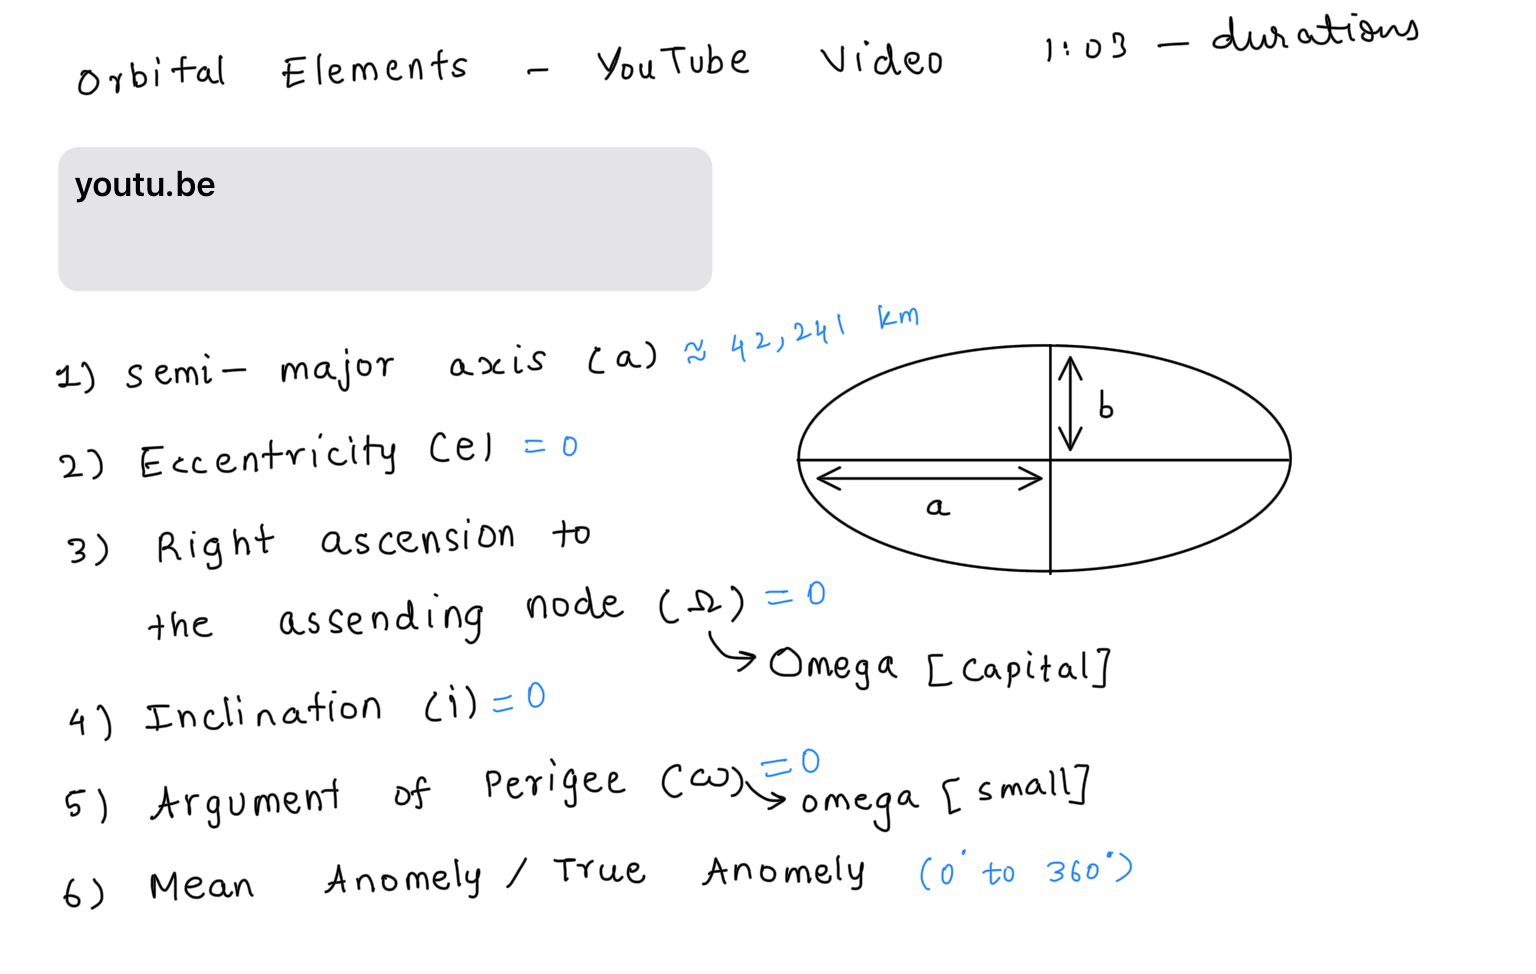 Orbital Elements - YouTube Video 1:03 - durations
youtu.be
1) semi- major axis (a) ≈ 42,241 km
b
a
2) Eccentricity (e) = 0
3) Right ascension to
the assending node (Ω) = 0
→ Omega [capital]
4) Inclination (i) = 0
5) Argument of Perigee (ω) = 0
→ omega [small]
6) Mean Anomely / True Anomely (0° to 360°)